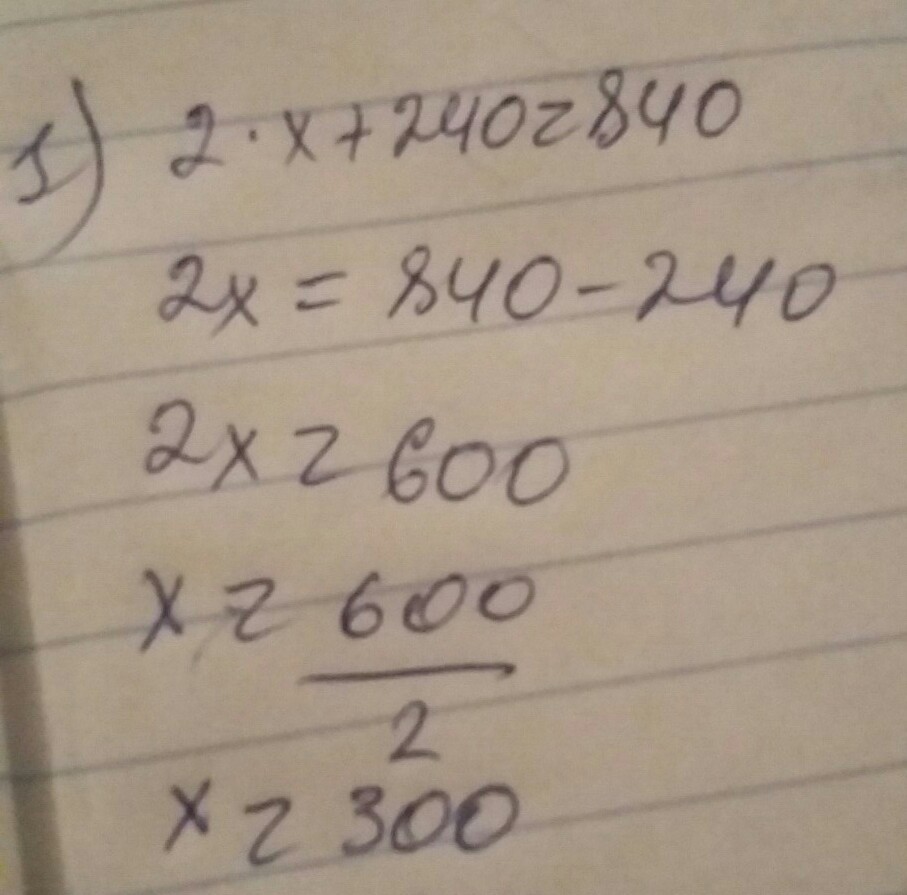 1) 2·x+240=840
2x = 840-240
2x = 600
x = 600
2
x = 300